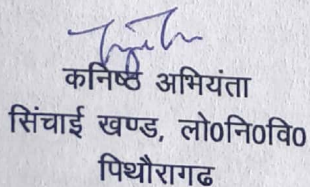 कनिष्ठ अभियंता
सिंचाई खण्ड, लो0नि0वि0
पिथौरागढ